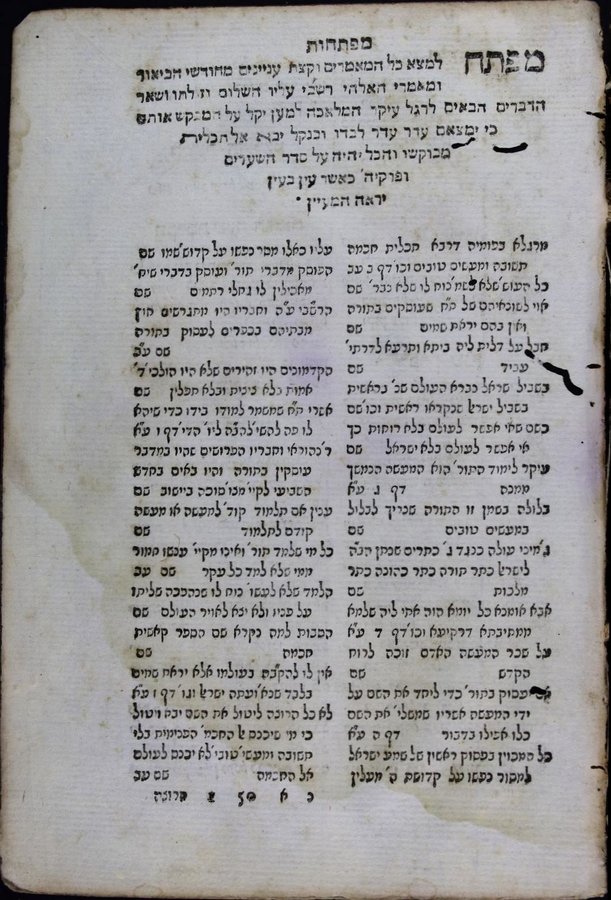 מפתחות
מפתח למצא כל המאמרים וקצת עניינים מחודשי הביאור
ומאמרי האלהי רשב״י עליו השלום וזולתו ושאר
הדברים הבאים לרגל עיקר המלאכה למען יקל על המבקש אותם
כי ימצאם עדר עדר לבדו ובנקל יבא אל תכלית
מבוקשו והכל יהיה על סדר השערים
ופרקיה׳ כאשר עין בעין
יראה המעיין
מרגלא בפומיה דרבא תכלית חכמה
תשובה ומעשים טובים וכו׳ דף ב עב
כל העוש׳ שלא לשמ׳ נוח לו שלא נבר׳ שם
אוי לשונאיהם של ת״ח שעוסקים בתורה
ואין בהם יראת שמים שם
חבל על דלית ליה ביתא ותרעא לדרתי׳
עביד שם
בשביל ישראל נברא העולם שנ׳ בראשית
בשביל ישרא׳ שנקראו ראשית וכו׳ שם
כשם שאי אפשר לעולם בלא רוחות כך
אי אפשר לעולם בלא ישראל שם
עיקר לימוד התור׳ הוא המעשה הנמשך
ממנה דף ג ע״א
בלולה בשמן זו התורה שצריך לבלול
במעשים טובים שם
ג׳ מיני עולה כנגד ג׳ כתרים שנתן הב״ה
לישרא׳ כתר תורה כתר כהונה כתר
מלכות שם
אבא אומנא כל יומא הוה אתי ליה שלמא
ממתיבתא דרקיעא וכו׳ דף ד ע״א
על שכר המעשה האדם זוכה לרוח
הקדש שם
יעסוק בתור׳ כדי ליחד את השם על
ידי המעשה אשריו שמשלי׳ את השם
כלו אפילו בדבור דף ה ע״א
כל המכוין בפסוק ראשון של שמע ישראל
למסור נפשו על קדושת ה׳ מעלין
עליו כאלו מסר נפשו על קדוש׳ שמו שם
הפוסק מדברי תור׳ ועוסק בדברי שיח׳
מאכילין לו גחלי רתמים שם
הרשב״י ע״ה וחבריו היו מתגרשים חוץ
מבתיהם בכפרים לעסוק בתורה
שם ע״ב
הקדמונים היו זהירים שלא היו הולכי׳ ד׳
אמות בלא ציצית ובלא תפלין שם
אשרי ת״ח שמשמר למודו בידו כדי שיהא
לו פה להשי׳ להב״ה ליו׳ הדי׳ דף ו ע״א
ר׳ נהוראי וחבריו הפרושים שהיו במדבר
עוסקין בתורה והיו באים בחדש
השביעי לקיי׳ מצו׳ סוכה בישוב שם
ענין אם תלמוד קוד׳ למעשה או מעשה
קודם לתלמוד שם
כל מי שלמד תור׳ ואינו מקיי׳ ענשו חמור
ממי שלא למד כל עקר שם עב
הלמד שלא לעשו׳ נוח לו שנהפכה שליתו
על פניו ולא יצא לאויר העולם שם
הסבות למה נקרא שם הספר ראשית
חכמה שם
אין לו להקב״ה בעולמו אלא יראת שמים
בלבד שנא׳ ועתה ישרא׳ וגו׳ דף ז ע״א
לא כל הרוצה ליטול את השם יבא ויטול
כי מי שיכנס אל החכמ׳ הפנימית בלי
תשובה ומעשי׳ טובי׳ לא יכנס לעולם
אל החכמה שם עב
הרוצה